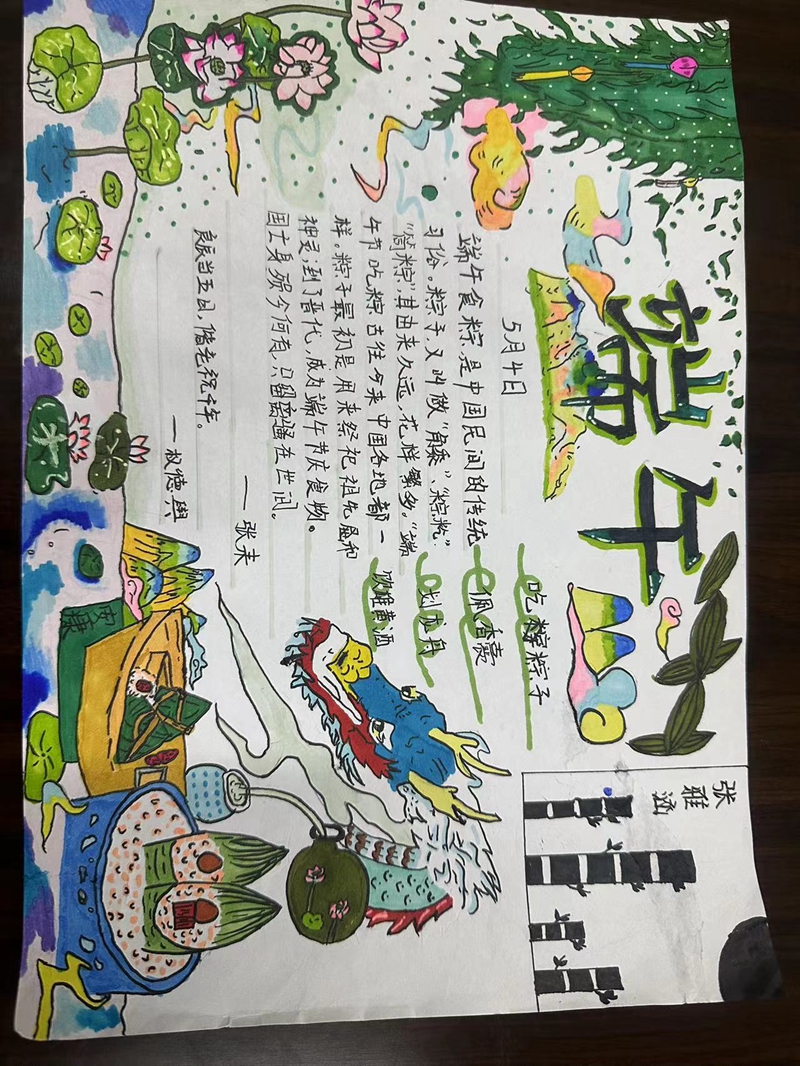 端午
5月4日
端午食粽,是中国民间的传统
习俗。粽子,又叫做“角黍”、“粽籺”.
“筒粽”其由来久远,花样繁多。“端
午节吃粽 古往今来 中国各地都一
样。粽子最初是用来祭祀祖先和
神灵;到了晋代,成为端午节庆食物。
国士身殒今何有,只留离骚在世间。
— 张耒
良辰当五日,偕老祝千年。
— 权德舆
吃粽子
佩香囊
划龙舟
饮雄黄酒
张雅涵
安康